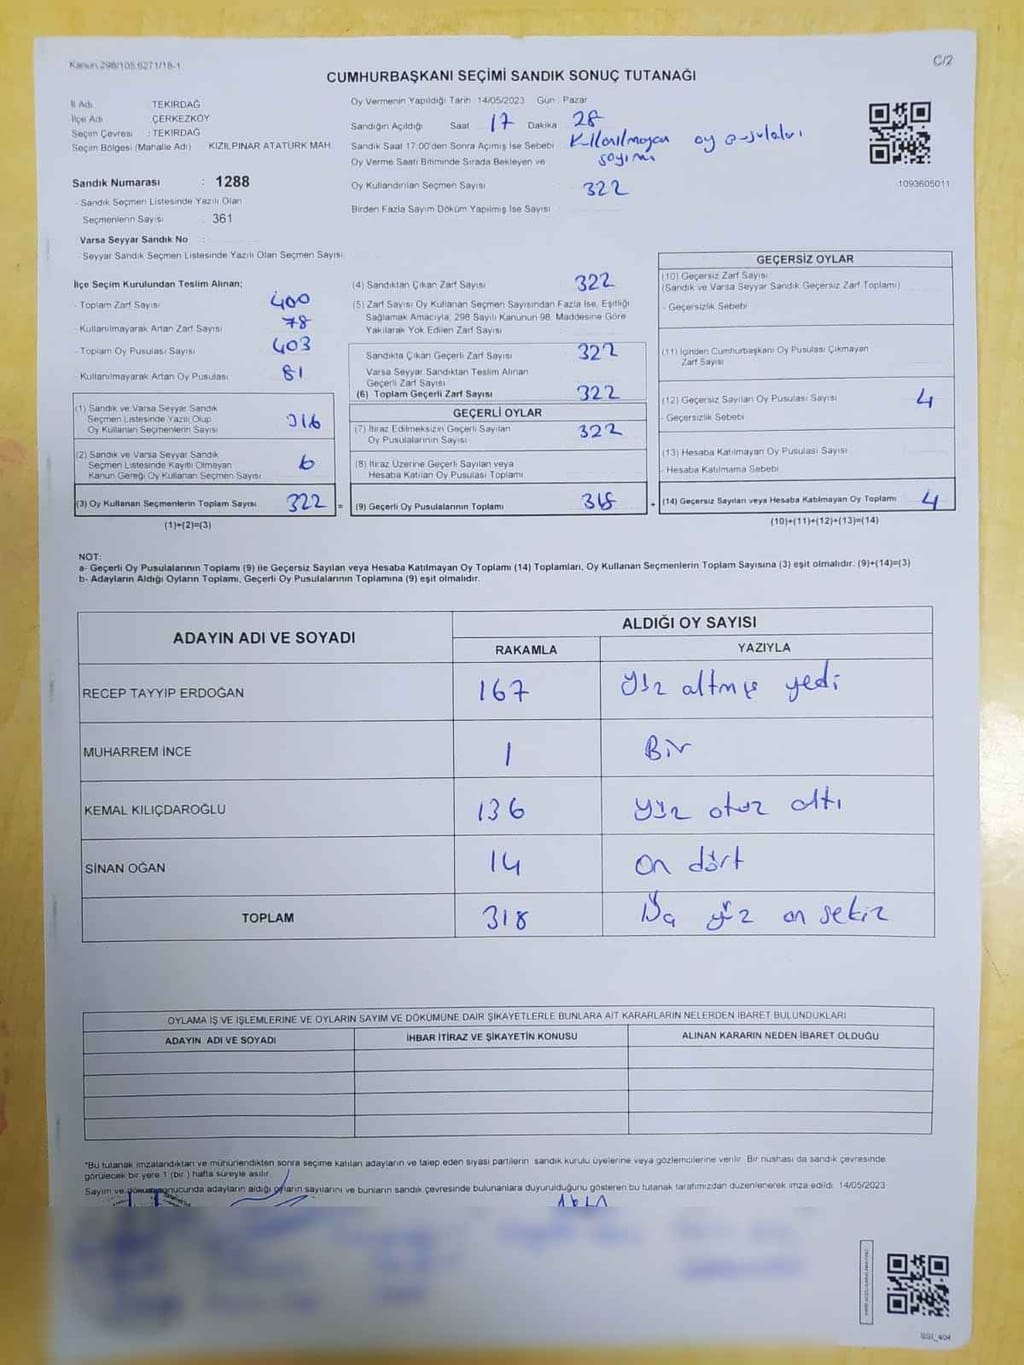 Kanun 298/105;6271/18-1
C/2
CUMHURBAŞKANI SEÇİMİ SANDIK SONUÇ TUTANAĞI
İl Adı TEKİRDAĞ
İlçe Adı ÇERKEZKÖY
Seçim Çevresi : TEKİRDAĞ
Seçim Bölgesi (Mahalle Adı) KIZILPINAR ATATÜRK MAH
Sandık Numarası : 1288
- Sandık Seçmen Listesinde Yazılı Olan
Seçmenlerin Sayısı : 361
Varsa Seyyar Sandık No :
- Seyyar Sandık Seçmen Listesinde Yazılı Olan Seçmen Sayısı
Oy Vermenin Yapıldığı Tarih 14/05/2023 Gün Pazar
Sandığın Açıldığı Saat 17 Dakika 28
Sandık Saat 17.00'den Sonra Açılmış İse Sebebi Kullanılmayan oy pusulaları
sayımı
Oy Verme Saati Bitiminde Sırada Bekleyen ve
Oy Kullandırılan Seçmen Sayısı 322
Birden Fazla Sayım Döküm Yapılmış İse Sayısı
1093605011
İlçe Seçim Kurulundan Teslim Alınan;
- Toplam Zarf Sayısı 400
- Kullanılmayarak Artan Zarf Sayısı 78
- Toplam Oy Pusulası Sayısı 403
- Kullanılmayarak Artan Oy Pusulası 81
(1) Sandık ve Varsa Seyyar Sandık
Seçmen Listesinde Yazılı Olup
Oy Kullanan Seçmenlerin Sayısı 316
(2) Sandık ve Varsa Seyyar Sandık
Seçmen Listesinde Kayıtlı Olmayan
Kanun Gereği Oy Kullanan Seçmen Sayısı 6
(3) Oy Kullanan Seçmenlerin Toplam Sayısı 322 =
(1)+(2)=(3)
(4) Sandıktan Çıkan Zarf Sayısı 322
(5) Zarf Sayısı Oy Kullanan Seçmen Sayısından Fazla İse, Eşitliği
Sağlamak Amacıyla, 298 Sayılı Kanunun 98. Maddesine Göre
Yakılarak Yok Edilen Zarf Sayısı
Sandıkta Çıkan Geçerli Zarf Sayısı 322
Varsa Seyyar Sandıktan Teslim Alınan
Geçerli Zarf Sayısı
(6) Toplam Geçerli Zarf Sayısı 322
GEÇERLİ OYLAR
(7) İtiraz Edilmeksizin Geçerli Sayılan
Oy Pusulalarının Sayısı 322
(8) İtiraz Üzerine Geçerli Sayılan veya
Hesaba Katılan Oy Pusulası Toplamı
(9) Geçerli Oy Pusulalarının Toplamı 318 +
GEÇERSİZ OYLAR
(10) Geçersiz Zarf Sayısı
(Sandık ve Varsa Seyyar Sandık Geçersiz Zarf Toplamı)
- Geçersizlik Sebebi
(11) İçinden Cumhurbaşkanı Oy Pusulası Çıkmayan
Zarf Sayısı
(12) Geçersiz Sayılan Oy Pusulası Sayısı 4
- Geçersizlik Sebebi
(13) Hesaba Katılmayan Oy Pusulası Sayısı
- Hesaba Katılmama Sebebi
(14) Geçersiz Sayılan veya Hesaba Katılmayan Oy Toplamı 4
(10)+(11)+(12)+(13)=(14)
NOT:
a- Geçerli Oy Pusulalarının Toplamı (9) ile Geçersiz Sayılan veya Hesaba Katılmayan Oy Toplamı (14) Toplamları, Oy Kullanan Seçmenlerin Toplam Sayısına (3) eşit olmalıdır. (9)+(14)=(3)
b- Adayların Aldığı Oyların Toplamı, Geçerli Oy Pusulalarının Toplamına (9) eşit olmalıdır.
ADAYIN ADI VE SOYADI
ALDIĞI OY SAYISI
RAKAMLA YAZIYLA
RECEP TAYYİP ERDOĞAN 167 yüz altmış yedi
MUHARREM İNCE 1 Bir
KEMAL KILIÇDAROĞLU 136 yüz otuz altı
SİNAN OĞAN 14 on dört
TOPLAM 318 Üç yüz on sekiz
OYLAMA İŞ VE İŞLEMLERİNE VE OYLARIN SAYIM VE DÖKÜMÜNE DAİR ŞİKAYETLERLE BUNLARA AİT KARARLARIN NELERDEN İBARET BULUNDUKLARI
ADAYIN ADI VE SOYADI İHBAR İTİRAZ VE ŞİKAYETİN KONUSU ALINAN KARARIN NEDEN İBARET OLDUĞU
*Bu tutanak imzalandıktan ve mühürlendikten sonra seçime katılan adayların ve talep eden siyasi partilerin sandık kurulu üyelerine veya gözlemcilerine verilir. Bir nüshası da sandık çevresinde
görülecek bir yere 1 (bir ) hafta süreyle asılır.
Sayım ve döküm sonucunda adayların aldığı oyların sayılarını ve bunların sandık çevresinde bulunanlara duyurulduğunu gösteren bu tutanak tarafımızdan düzenlenerek imza edildi. 14/05/2023
SSI_404